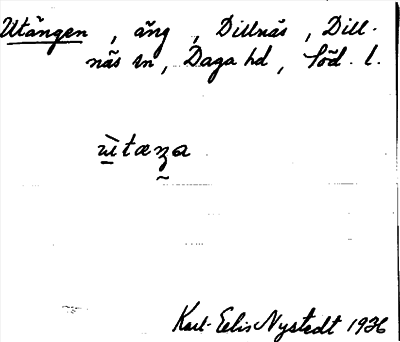 Utängen, äng, Dillnäs, Dill-
näs sn, Daga hd, Söd. l.
Karl-Eelis Nystedt 1936